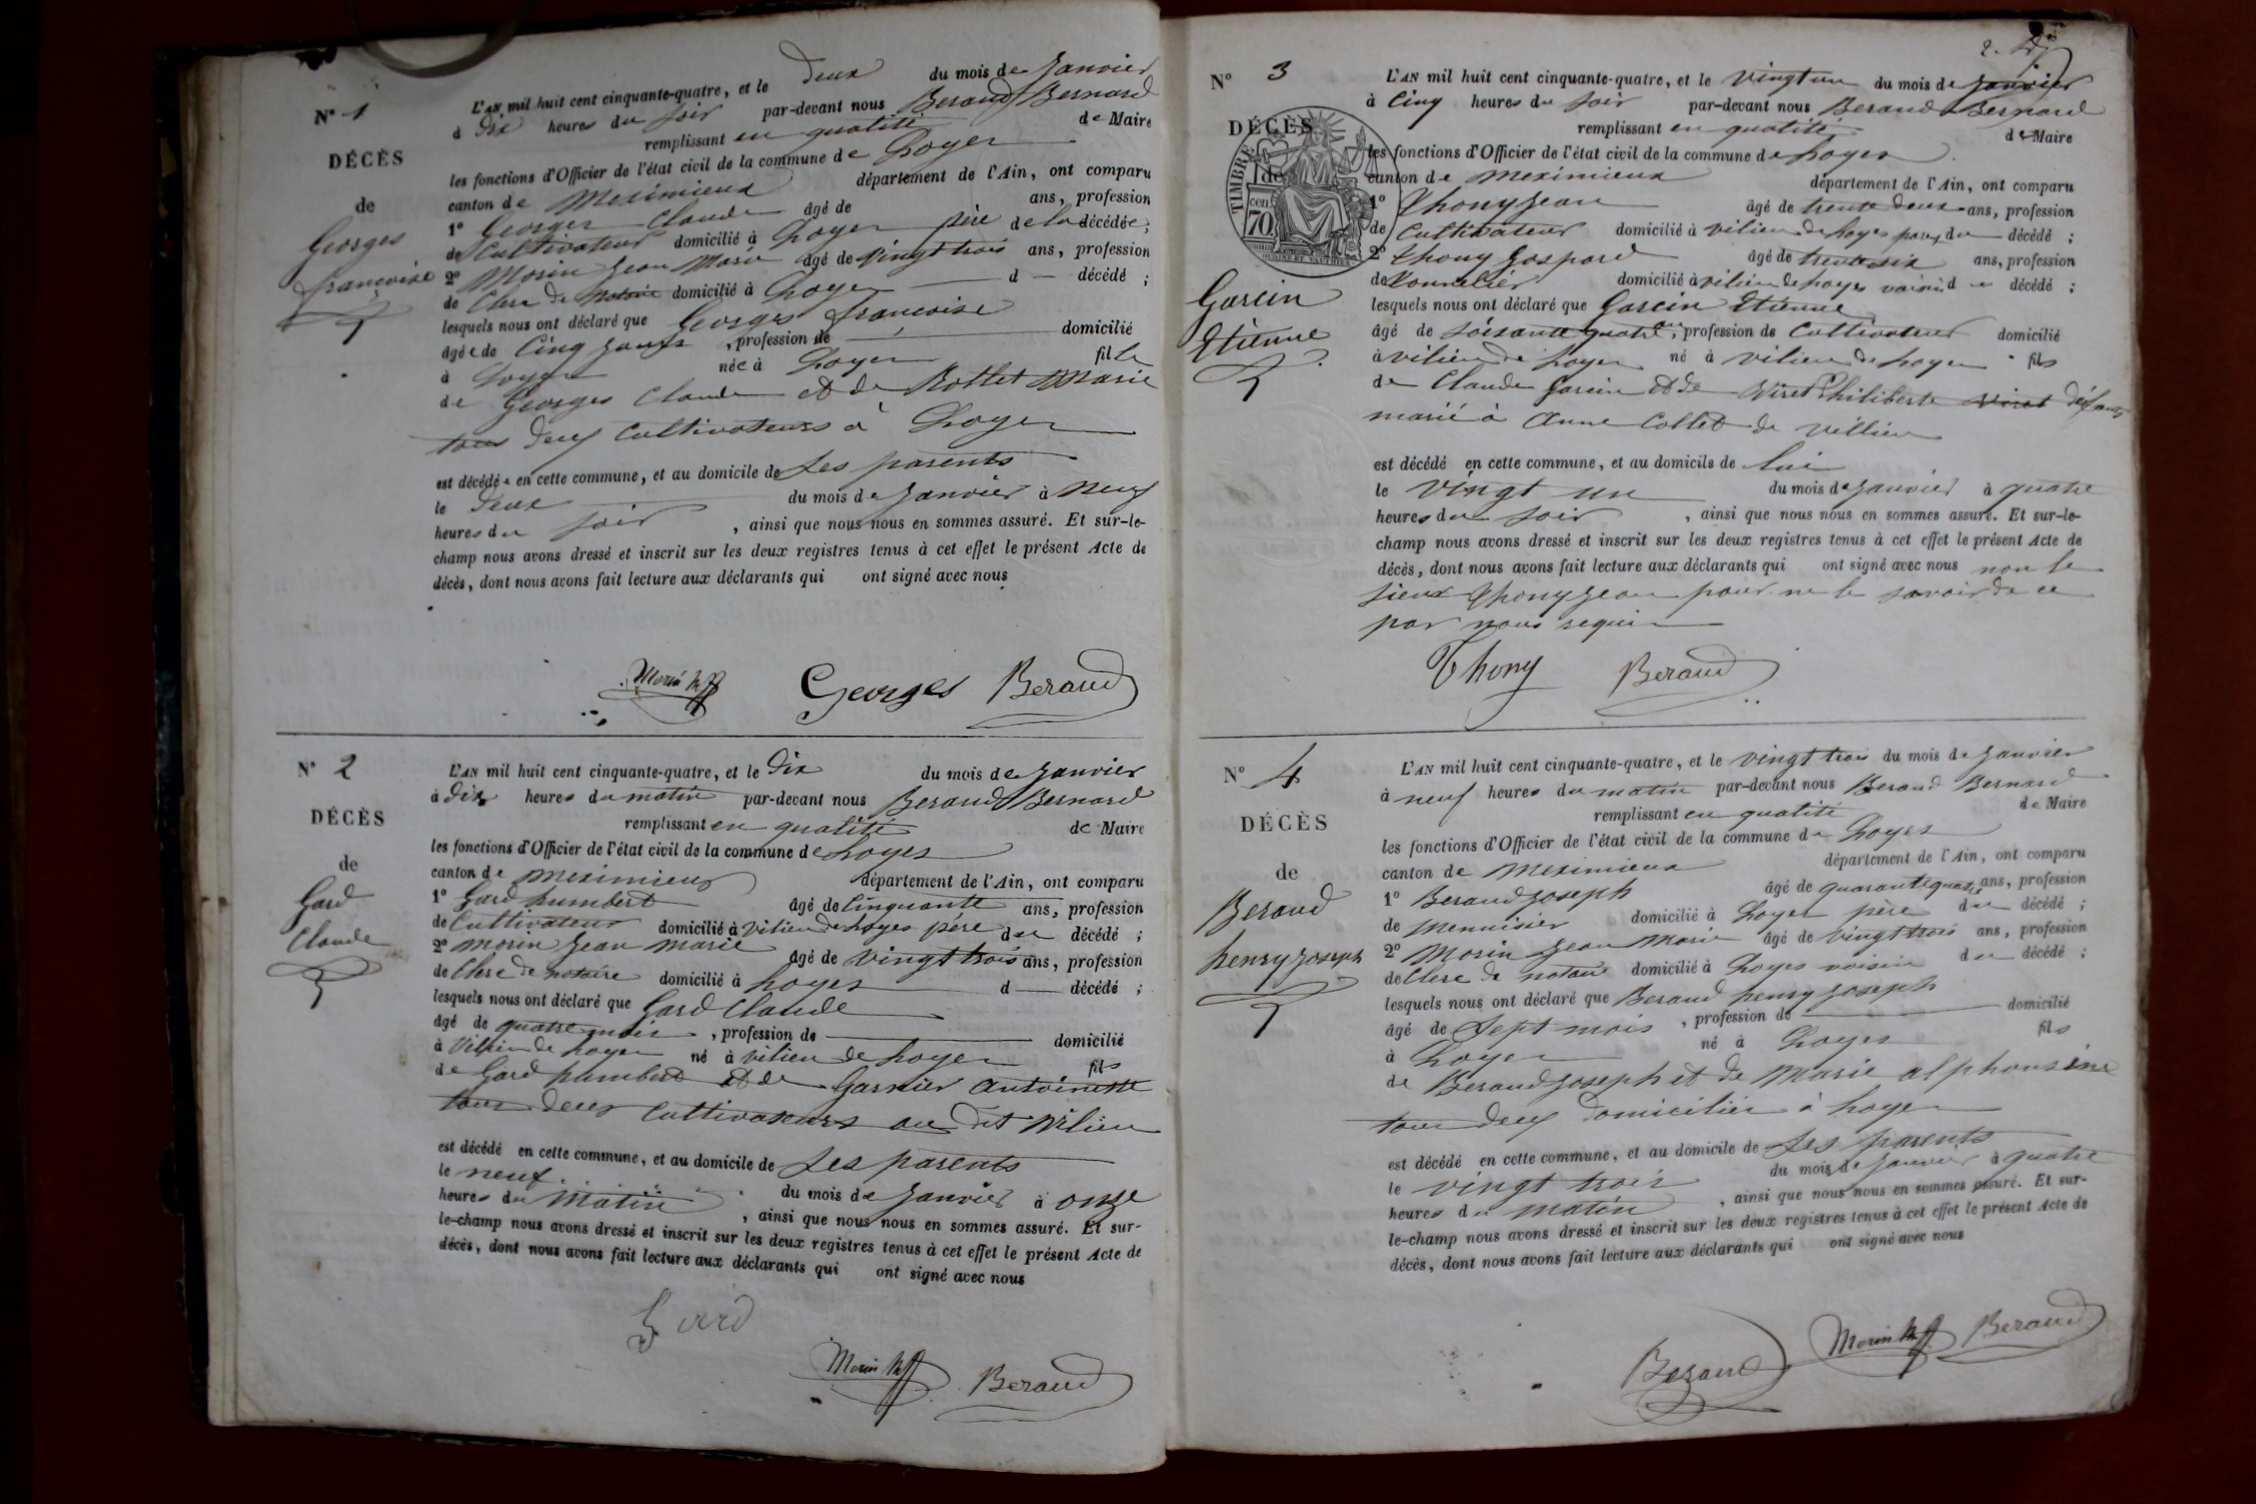 N° 1
DÉCÈS
de
Georges
françoise
L'AN mil huit cent cinquante-quatre, et le deux du mois de Janvier
à dix heures du soir par-devant nous Beraud Bernard
remplissant en qualité de Maire
les fonctions d'Officier de l'état civil de la commune de Loyes
canton de Meximieux département de l'Ain, ont comparu
1° Georges Claude âgé de ans, profession
de Cultivateur domicilié à Loyes père de la décédée;
2° Morin Jean Marie âgé de vingt trois ans, profession
de Clerc de Notaire domicilié à Loyes d — décédé ;
lesquels nous ont déclaré que Georges françoise
âgée de Cinq jours , profession de domicilié
à Loyes née à Loyes fille
de Georges Claude et de Rollet Marie
tous deux cultivateurs à Loyes
est décédée en cette commune, et au domicile de ses parents
le deux du mois de Janvier à neuf
heures du soir , ainsi que nous nous en sommes assuré. Et sur-le-
champ nous avons dressé et inscrit sur les deux registres tenus à cet effet le présent Acte de
décès, dont nous avons fait lecture aux déclarants qui ont signé avec nous
Morin Georges Beraud
N° 2
DÉCÈS
de
Gard
Claude
L'AN mil huit cent cinquante-quatre, et le dix du mois de Janvier
à dix heures du matin par-devant nous Beraud Bernard
remplissant en qualité de Maire
les fonctions d'Officier de l'état civil de la commune de Loyes
canton de Meximieux département de l'Ain, ont comparu
1° Gard humbert âgé de Cinquante ans, profession
de Cultivateur domicilié à Vilieu de Loyes père du décédé ;
2° Morin Jean marie âgé de vingt trois ans, profession
de Clerc de notaire domicilié à Loyes d — décédé ;
lesquels nous ont déclaré que Gard Claude
âgé de quatre mois , profession de domicilié
à Vilieu de Loyes né à vilieu de Loyes fils
de Gard humbert et de Garnier Antoinette
tous deux Cultivateurs au dit Vilieu
est décédé en cette commune, et au domicile de ses parents
le neuf du mois de Janvier à onze
heures du Matin , ainsi que nous nous en sommes assuré. Et sur-
le-champ nous avons dressé et inscrit sur les deux registres tenus à cet effet le présent Acte de
décès, dont nous avons fait lecture aux déclarants qui ont signé avec nous
Gard
Morin Beraud
2.
N° 3
DÉCÈS
TIMBRE
70
Garcin
Etienne
L'AN mil huit cent cinquante-quatre, et le vingt un du mois de Janvier
à Cinq heures du soir par-devant nous Beraud Bernard
remplissant en qualité de Maire
les fonctions d'Officier de l'état civil de la commune de Loyes
canton de Meximieux département de l'Ain, ont comparu
1° Thony Jean âgé de trente deux ans, profession
de Cultivateur domicilié à vilieu de Loyes du décédé ;
2° Thony Gaspard âgé de trente six ans, profession
de Tonnelier domicilié à vilieu de Loyes voisin du décédé ;
lesquels nous ont déclaré que Garcin Etienne
âgé de soixante quatre , profession de Cultivateur domicilié
à vilieu de Loyes né à vilieu de Loyes fils
de Claude Garcin et de Viret Philiberte défunts
marié à Anne Collet de Villieu
est décédé en cette commune, et au domicile de lui
le vingt un du mois de Janvier à quatre
heures du soir , ainsi que nous nous en sommes assuré. Et sur-le-
champ nous avons dressé et inscrit sur les deux registres tenus à cet effet le présent Acte de
décès, dont nous avons fait lecture aux déclarants qui ont signé avec nous non le
sieur Thony Jean pour ne le savoir de ce
par nous requis
Thony Beraud
N° 4
DÉCÈS
de
Beraud
henry joseph
L'AN mil huit cent cinquante-quatre, et le vingt trois du mois de Janvier
à neuf heures du matin par-devant nous Beraud Bernard
remplissant en qualité de Maire
les fonctions d'Officier de l'état civil de la commune de Loyes
canton de Meximieux département de l'Ain, ont comparu
1° Beraud Joseph âgé de quarante quatre ans, profession
de Menuisier domicilié à Loyes père du décédé ;
2° Morin Jean Marie âgé de vingt trois ans, profession
de Clerc de notaire domicilié à Loyes voisin du décédé ;
lesquels nous ont déclaré que Beraud henry joseph
âgé de sept mois , profession de domicilié
à Loyes né à Loyes fils
de Beraud Joseph et de Marie alphonsine
tous deux domiciliés à Loyes
est décédé en cette commune, et au domicile de ses parents
le vingt trois du mois de Janvier à quatre
heures du matin , ainsi que nous nous en sommes assuré. Et sur-
le-champ nous avons dressé et inscrit sur les deux registres tenus à cet effet le présent Acte de
décès, dont nous avons fait lecture aux déclarants qui ont signé avec nous
Beraud Morin Beraud